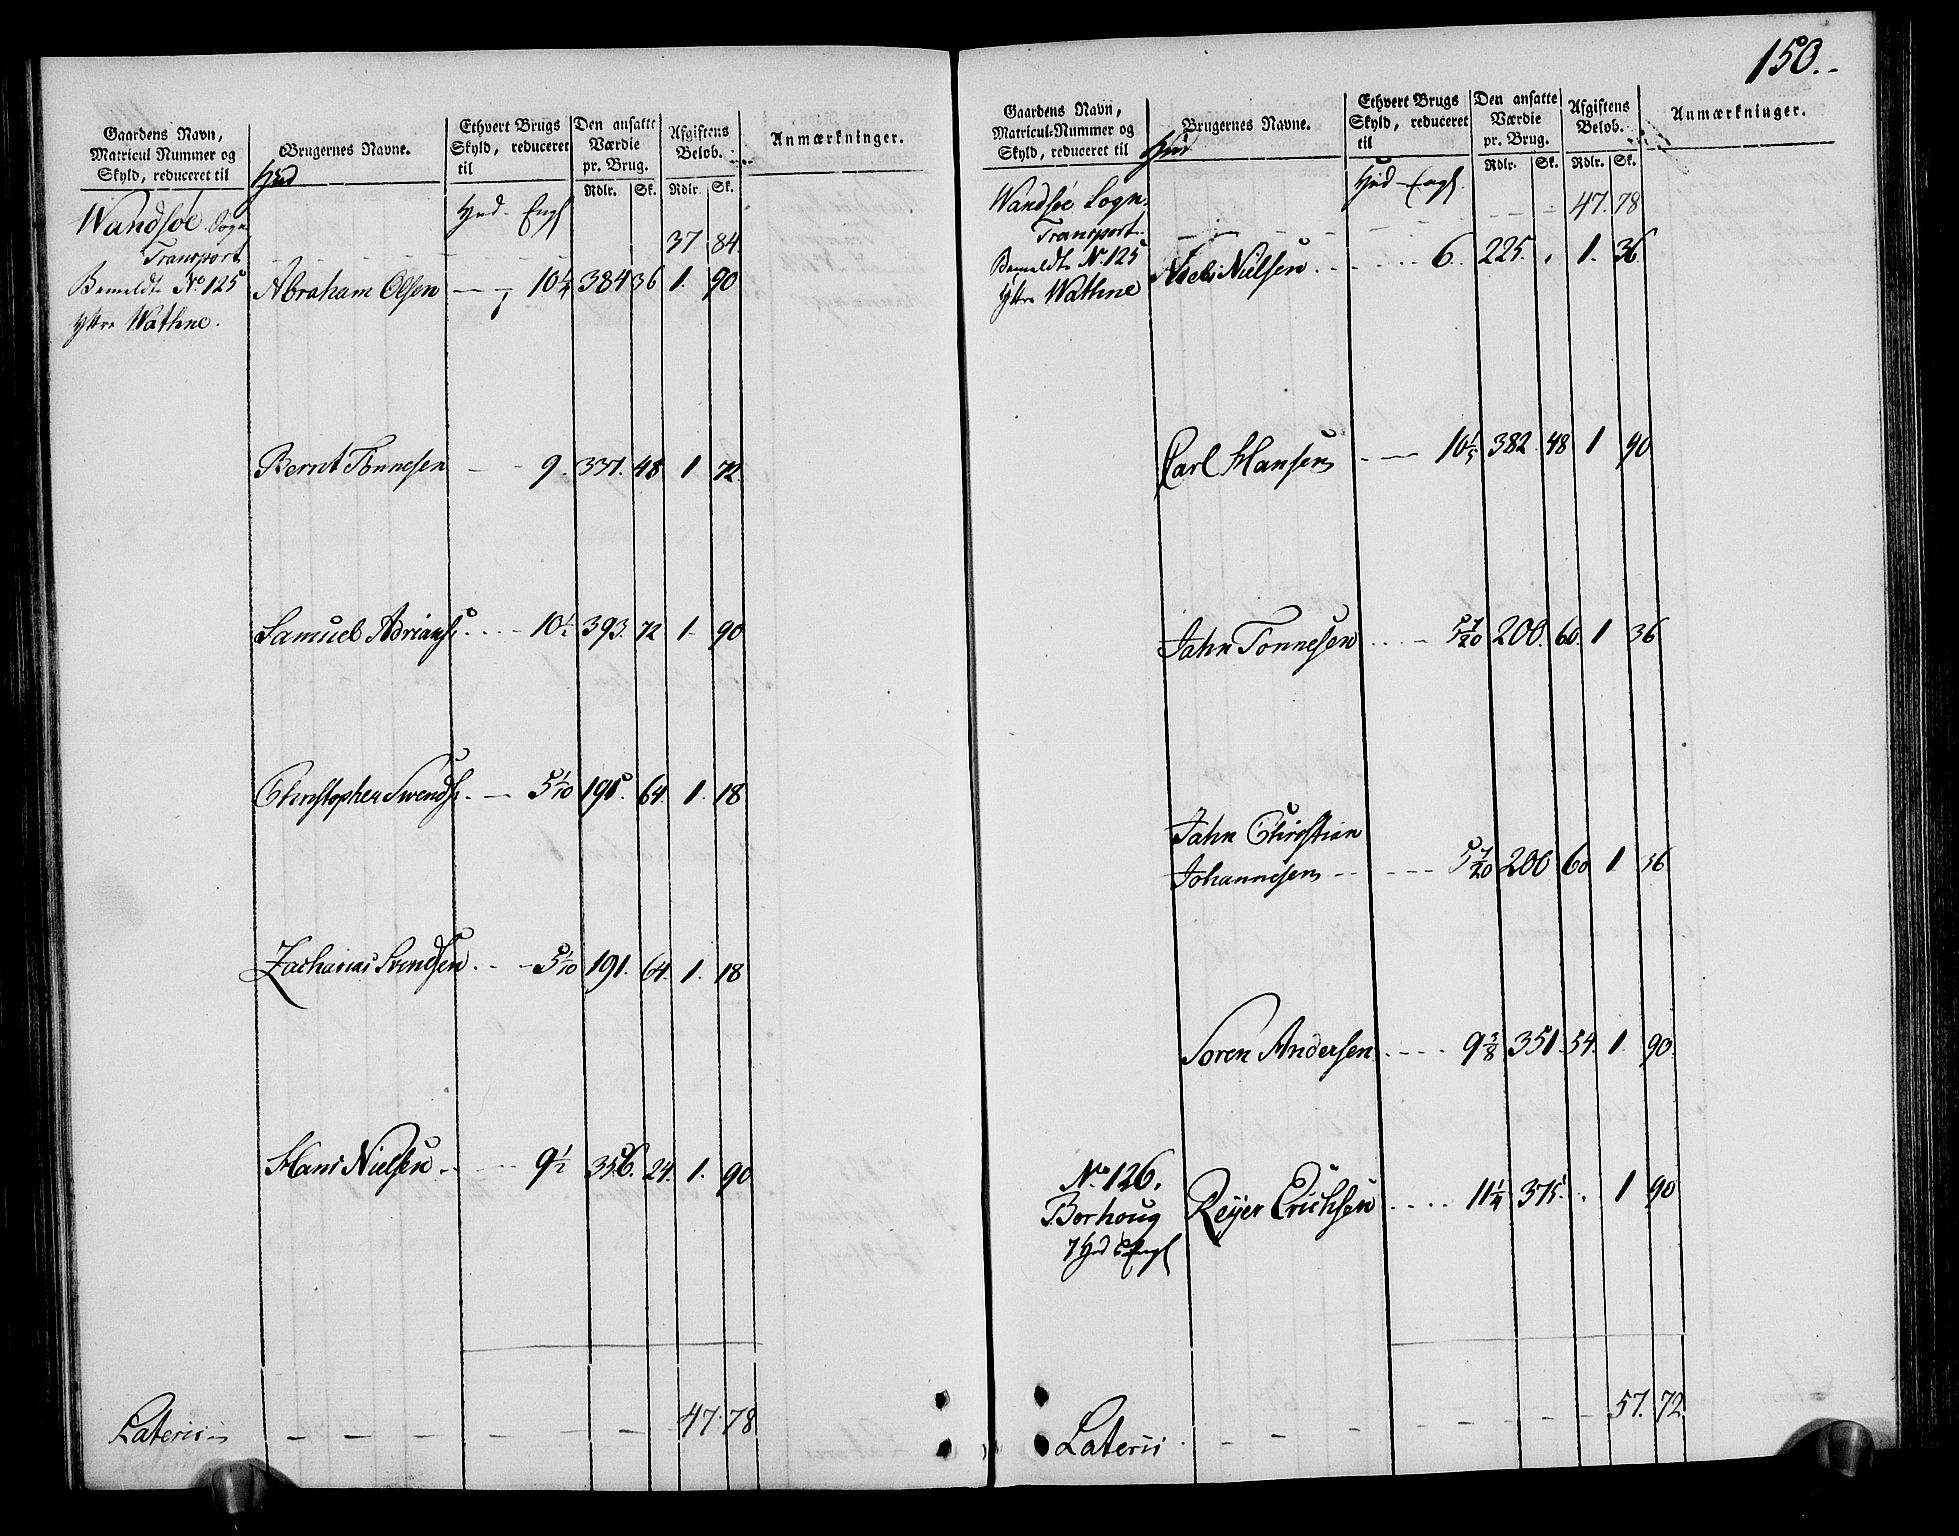 Gaardens Navn,
Matricul Nummer og
Skyld, reduceret til
Hud
Brugernes Navne.
Ethvert Brugs
Skyld, reduceret
til
Den ansatte
Værdie
pr. Brug.
Rdlr. Sk.
Afgiftens
Beløb.
Rdlr. Sk.
Anmærkninger.
Hud. Engl
Wandsøe Sogn
Transport 37 84
Bemeldte No. 125 Abraham Olsen 10 1/4 384 36 1. 90
Yttre Wathne.
Bernt Tønnesen 9. 337. 48 1 72
Samuel Adrians. 10 1/2 393. 72 1. 90
Christopher Svends. 5 1/10 191. 64. 1. 18
Zacharias Svendsen 5 1/10 191. 64. 1. 18
Hans Nielsen 9 1/2 356. 24. 1. 90
Lateris 47. 78
150.
Gaardens Navn,
Matricul-Nummer og
Skyld, reduceret til
Hud
Brugernes Navne.
Ethvert Brugs
Skyld, reduceret
til
Den ansatte
Værdie
pr. Brug.
Rdlr. Sk.
Afgiftens
Beløb.
Rdlr. Sk.
Anmærkninger.
Hud Engl.
Wandsøe Sogn. 47. 78
Transport
Bemeldte No. 125 Niels Nielsen 6. 225. 1. 36
Yttre Wathne
Carl Hansen 10 1/5 382. 48 1 90
Jahn Tonnesen 5 7/20 200. 60. 1 36
Jahn Christian
Johannesen 5 7/20 200 60 1 36
Soren Andersen 9 3/8 351. 54. 1. 90.
No. 126. Reyer Erichsen 11 1/4 375. 1 90
Borhoug
7 Hud 6 Engl
Lateris 57. 72.